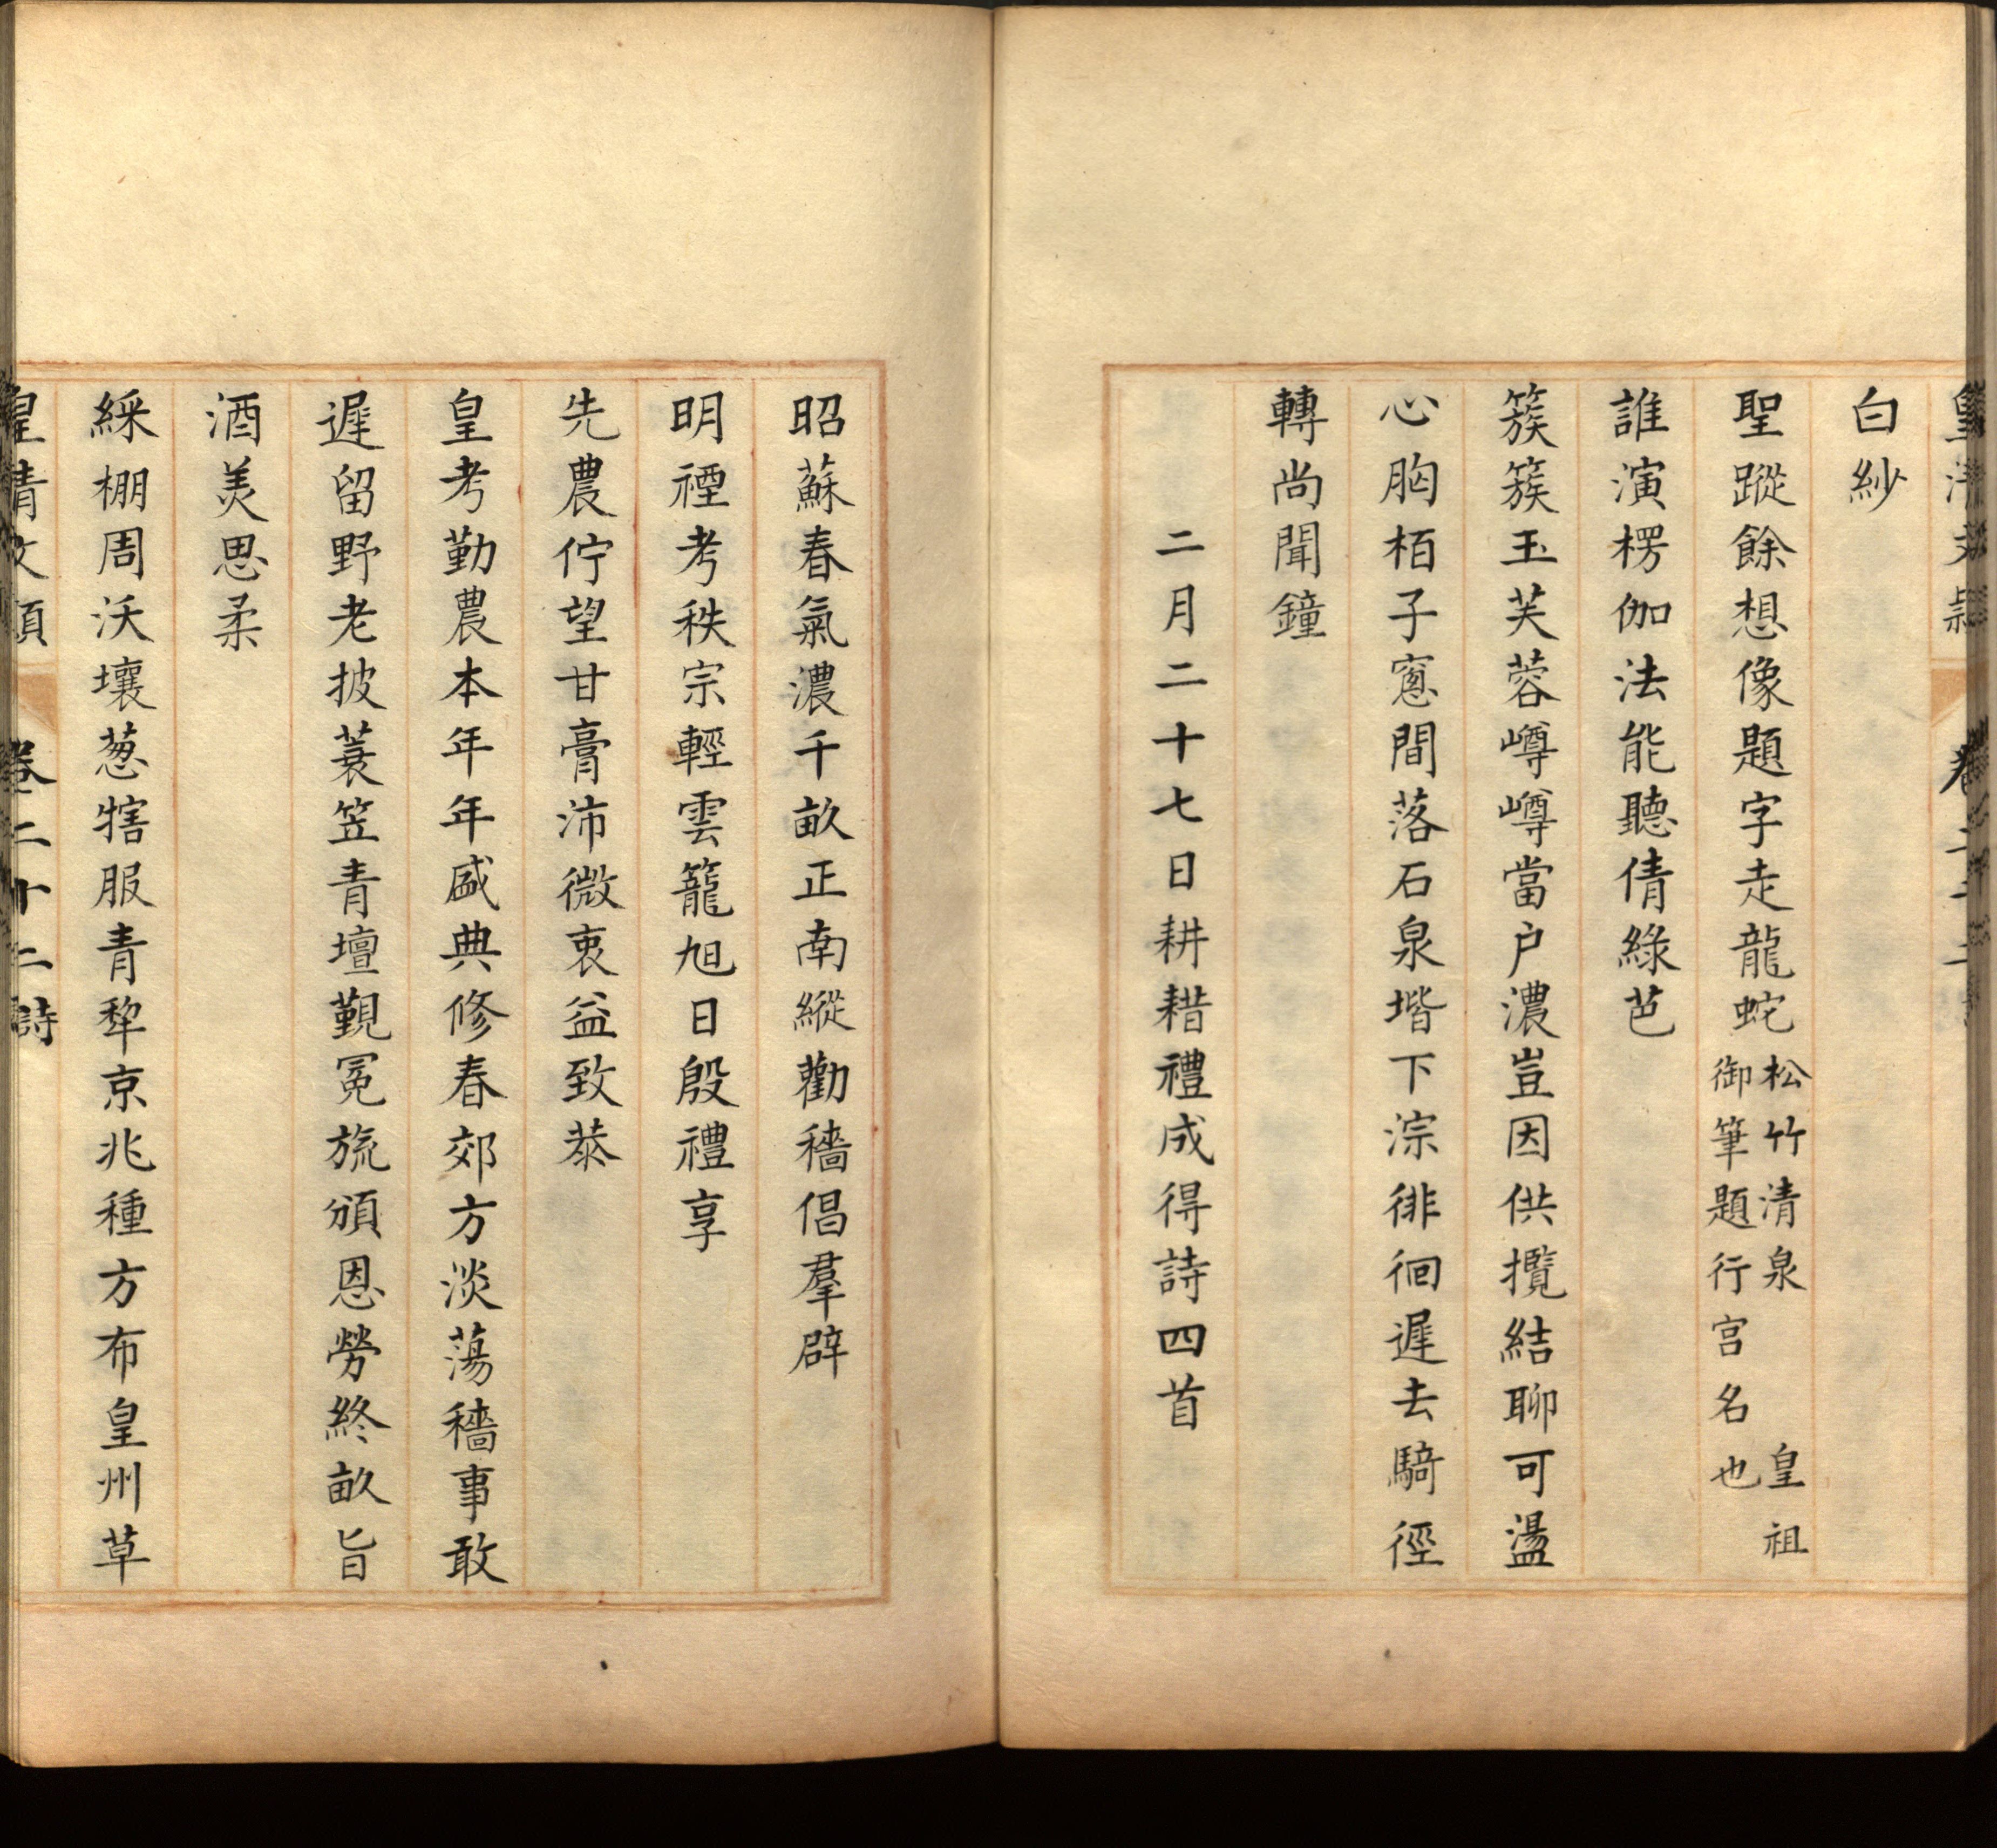 白紗
聖蹤餘想像題字走龍蛇松竹清泉 皇祖
御筆題行宮名也
誰演楞伽法能聽倩綠芭
簇簇玉芙蓉嶟嶟當户濃豈因供攬結聊可盪
心胸栢子窻間落石泉堦下淙徘徊遲去騎徑
轉尚聞鐘
二月二十七日耕耤禮成得詩四首
昭蘇春氣濃千畝正南縱勸穡倡羣辟
明禋考秩宗輕雲籠旭日殷禮享
先農佇望甘膏沛微衷益致恭
皇考勤農本年年盛典修春郊方淡蕩穡事敢
遲留野老披蓑笠青壇覲冕旒頒恩勞終畝旨
酒羙思柔
綵棚周沃壤葱犗服青犂京兆種方布皇州草
皇清文頴 卷二十二 詩